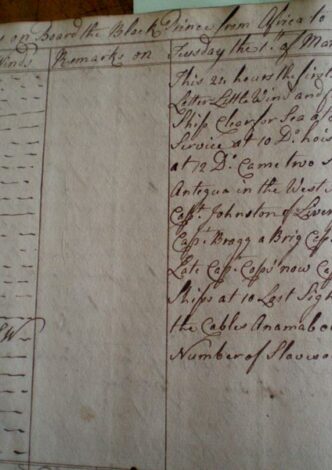 on Board the Black Prince from Africa to
Winds Remarks on Tuesday the 1st. of Mar
This 24 hours the first
Letter Little Wind and
Ship Clear for Sea
Service at 10 Do. hou
at 12 Do. Came two S
Antegua in the West
Capt. Johnston of Liver
Capt. Bragg a Brig Cap
Late Capt. now Ca
Ships at 10 Last Sigh
W the Cables Anamaboe
Number of Slaves o